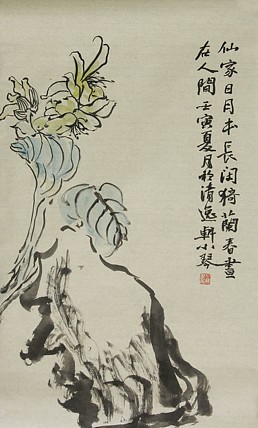 仙家日月本長閑猗蘭春晝
在人間壬寅夏月於清逸軒小琴